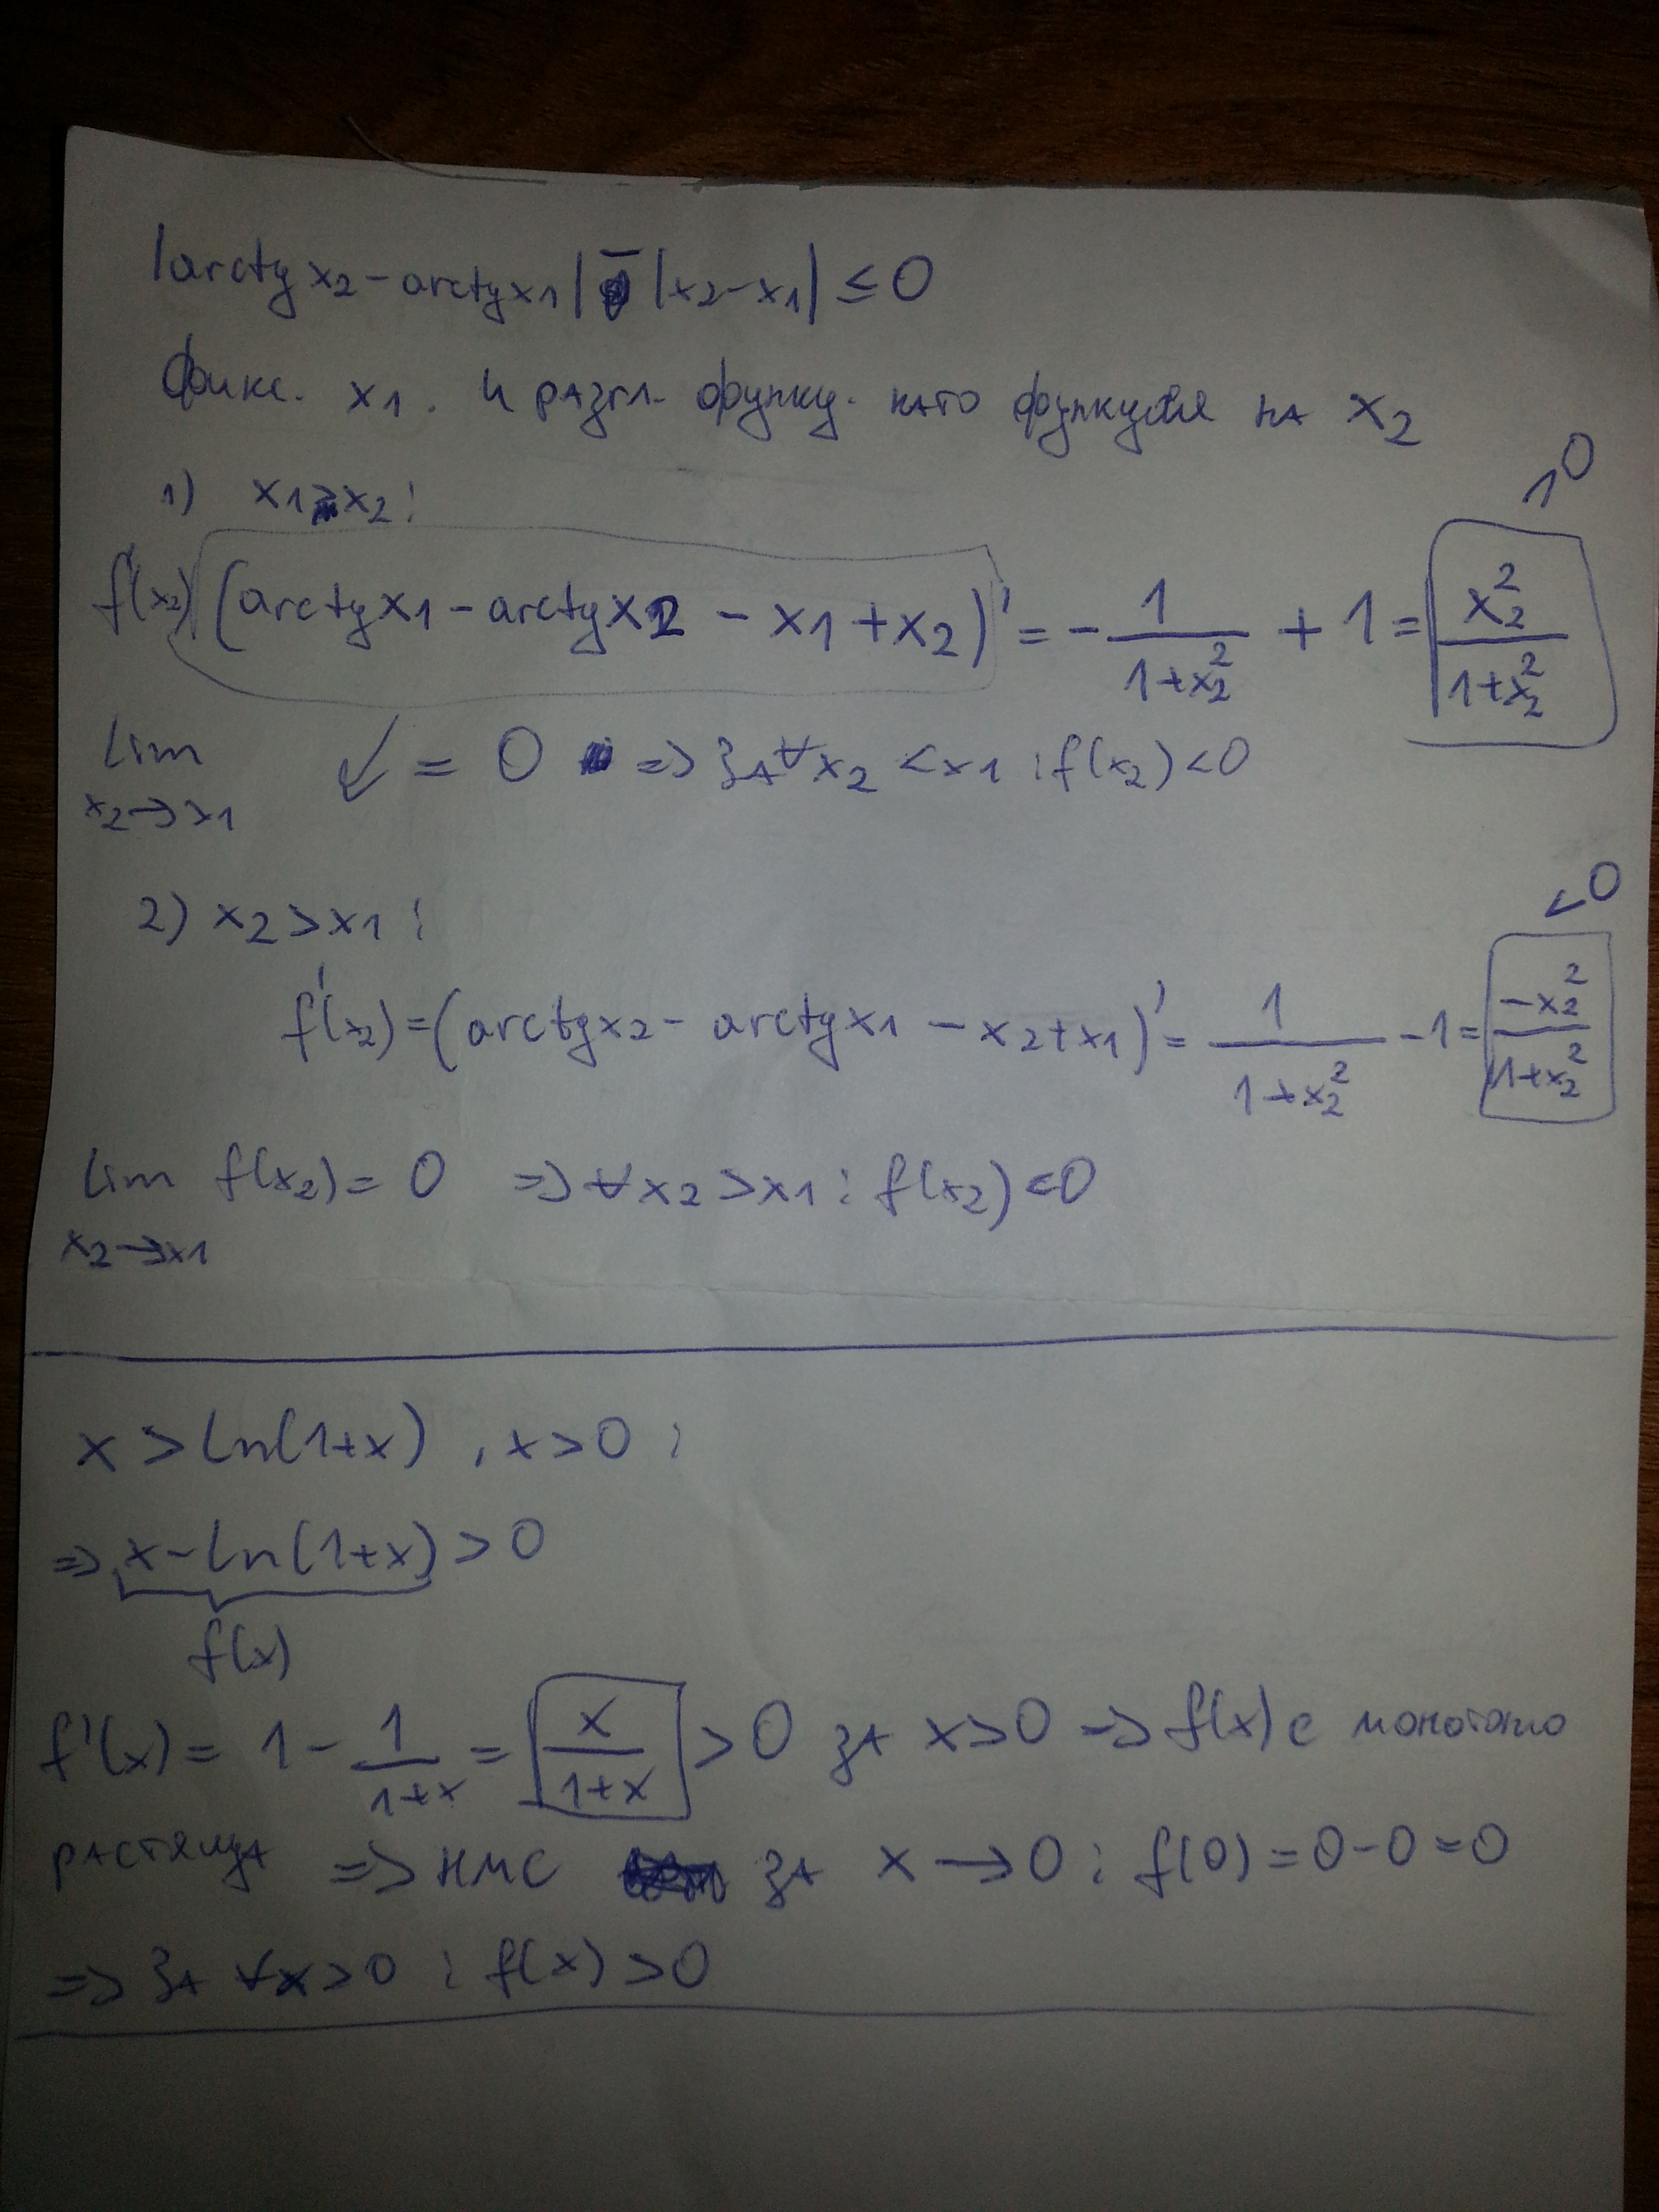 |arctg x₂ - arctg x₁| - |x₂ - x₁| ≤ 0
Фикс. x₁. и разгл. функц. като функция на x₂
1) x₁ > x₂ :
f'(x₂) (arctg x₁ - arctg x₂ - x₁ + x₂)' = - 1/(1+x₂²) + 1 = x₂²/(1+x₂²) > 0
lim x₂→x₁ ↙ = 0 => за ∀ x₂ < x₁ : f(x₂) < 0
2) x₂ > x₁ :
f'(x₂) = (arctg x₂ - arctg x₁ - x₂ + x₁)' = 1/(1+x₂²) - 1 = -x₂²/(1+x₂²) < 0
lim x₂→x₁ f(x₂) = 0 => ∀ x₂ > x₁ : f(x₂) < 0
x > ln(1+x) , x > 0 :
=> x - ln(1+x) > 0
f(x)
f'(x) = 1 - 1/(1+x) = x/(1+x) > 0 за x > 0 => f(x) е монотонно
растяща => НМС за x → 0 : f(0) = 0 - 0 = 0
=> за ∀x > 0 : f(x) > 0